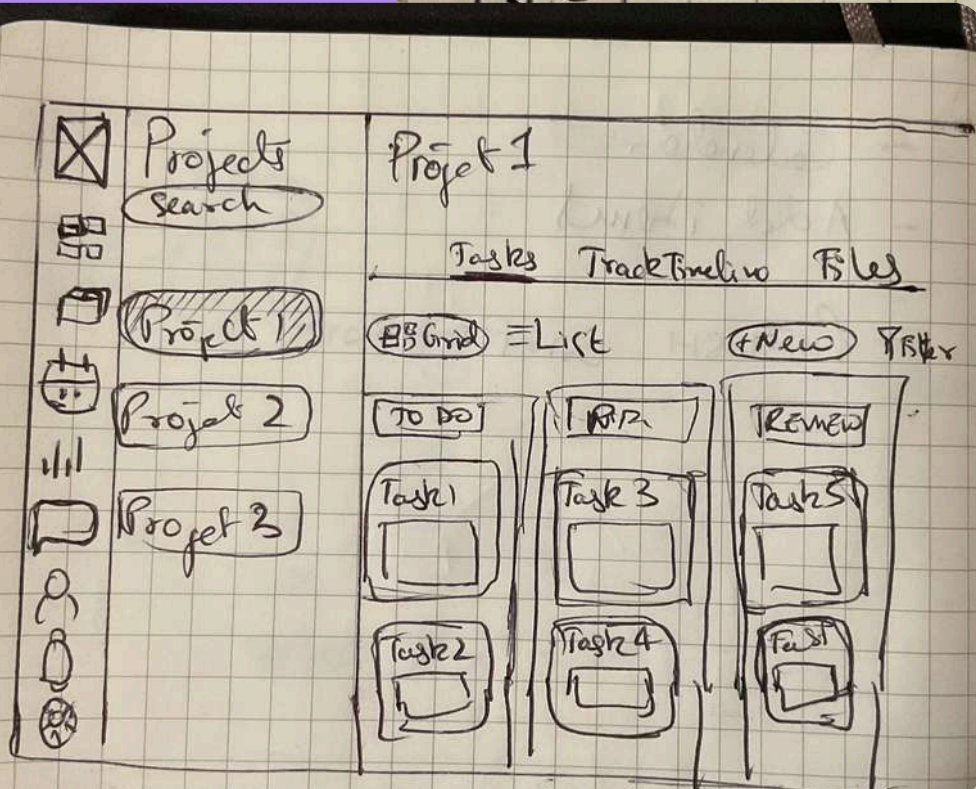 Projects
Search
Project 1
Projet 2
Projet 3
Projet 1
Tasks Track Timeline Files
Grid List +New Filter
TO DO
REVIEW
Task1 Task 3 Task5
Task2 Task4